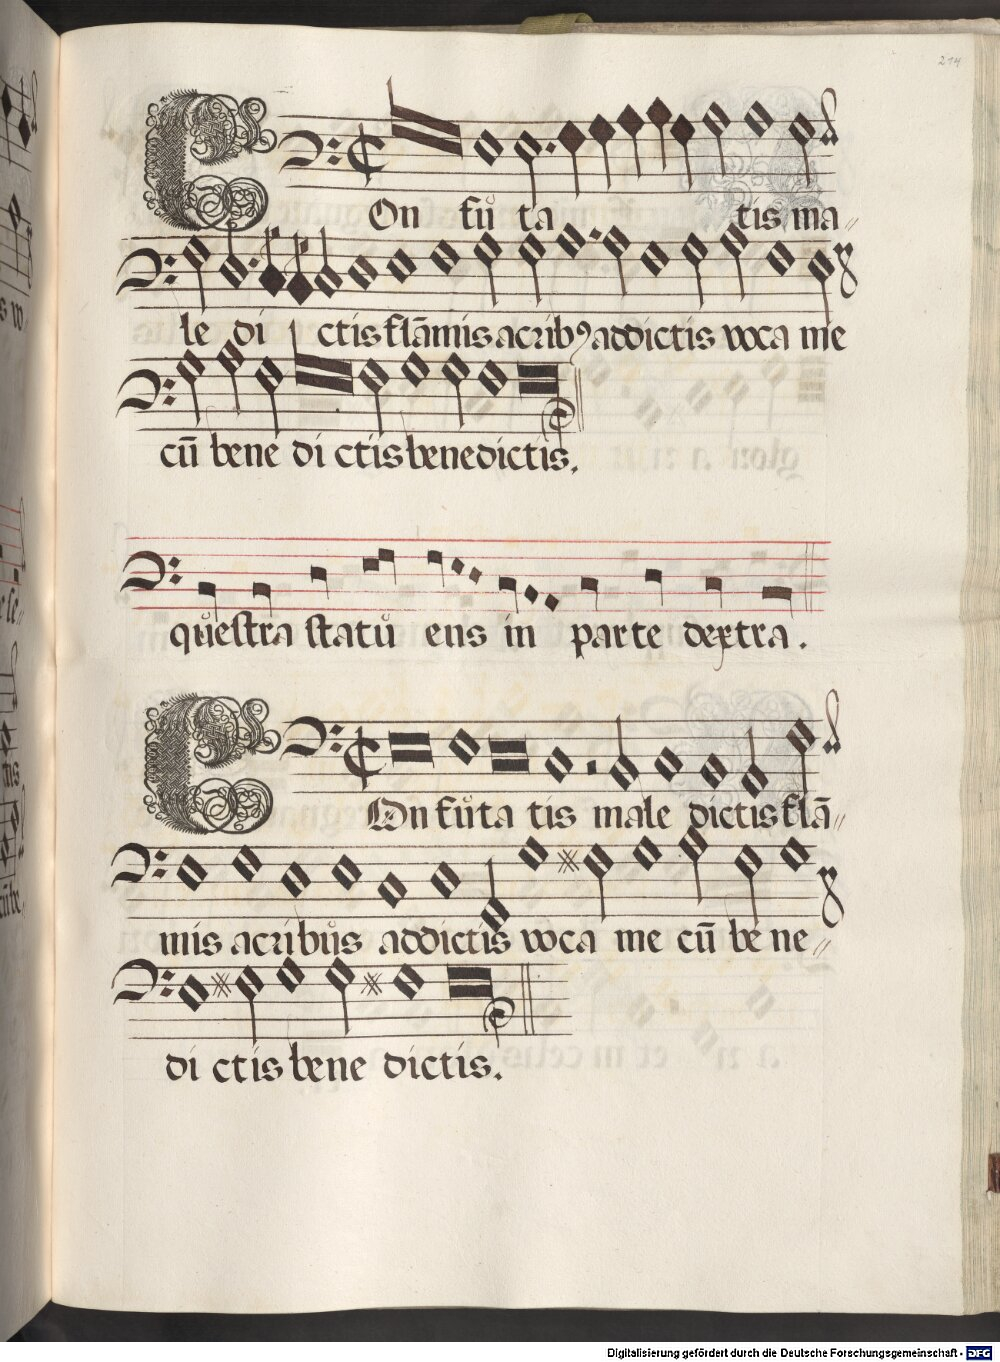 214
COn fu ta tis ma
le di ctis flãmis acribꝰ addictis voca me
cũ bene di ctis benedictis.
questra statu ens in parte dextra.
COn futa tis male dictis flã
mis acribus addictis voca me cũ be ne
di ctis bene dictis.
Digitalisierung gefördert durch die Deutsche Forschungsgemeinschaft - DFG